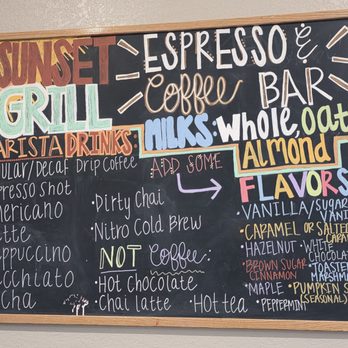 SUNSET
GRILL
ESPRESSO &
Coffee BAR
MILKS: Whole, Oat
Almond
ARISTA DRINKS:
ular/Decaf Drip Coffee
presso Shot
mericano
tte
ppuccino
cchiato
cha
• Dirty Chai
• Nitro Cold Brew
NOT Coffee:
• Hot Chocolate
• Chai latte
• Hot tea
ADD SOME
FLAVORS
• VANILLA/SUGAR
VANI
• CARAMEL OR SALTED
CARAM
• HAZELNUT
• WHITE
CHOCOLA
• BROWN SUGAR
CINNAMON
• TOASTED
MARSHM
• MAPLE
• PUMPKIN S
(SEASONAL)
• PEPPERMINT